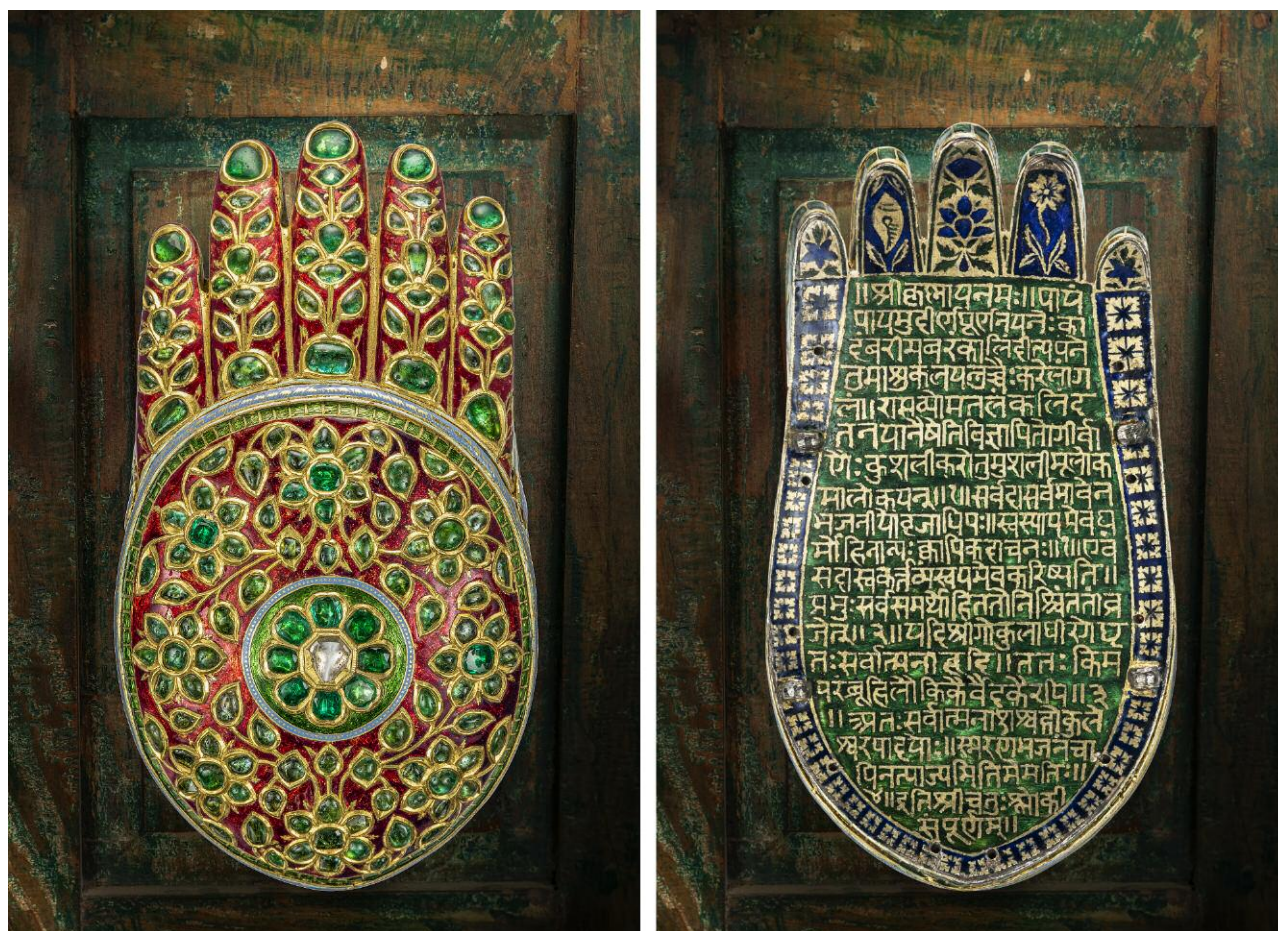 ॥श्रीकृष्णायनमः॥पायं
पायमुदीर्णघूर्णनयनः का
दंबरीमंबरकालिंदीत्यपने
तुमाशुकलयन्नुच्चैःकरेलांग
लं॥रामश्यामतलंकलिंद
तनयानैषेतिविज्ञापितोगीर्वा
णैःकुशलीकरोतुमुशलीमूलोक
मालोकयन्॥१॥सर्वदासर्वभावेन
भजनीयोव्रजाधिपः॥स्वस्यायमेवध
र्मोहिनान्यःक्वापिकदाचनः॥१॥एवं
सदास्वकर्तव्यंस्वयमेवकरिष्यति॥
प्रभुःसर्वसमर्थोहिततोनिश्चिततांव्र
जेत्॥२॥यदिश्रीगोकुलाधीशोधृ
तःसर्वात्मनाहृदि॥ततःकिम
परंब्रूहिलौकिकैर्वैदिकैरपि॥३
॥अतःसर्वात्मनाशश्वद्गोकुले
श्वरपादयोः॥स्मरणंभजनंचा
पिनत्याज्यमितिमेमतिः॥
४॥इतिश्रीचतुःश्लोकी
संपूर्णम्॥